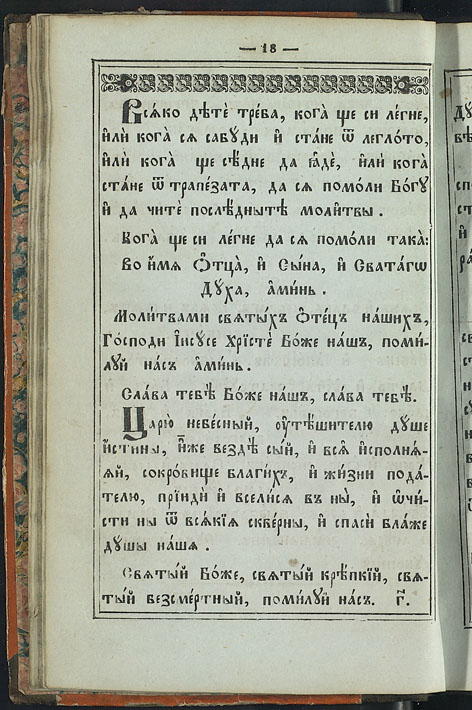 — 18 —
Вся́ко дѣтѐ тре́ба, кога̀ ще си лѐгне,
и҆лѝ кога̀ ся сабу́ди и҆ ста́не ѿ легло́то,
и҆лѝ кога̀ ще сѣ́дне да ꙗ҆дѐ, и҆лѝ кога̀
ста́не ѿ трапе́зата, да ся помо́ли Бо́гу
и҆ да читѐ послѣ́днытѣ моли́твы.
Кога̀ ще си лѐгне да ся помо́ли така̀:
Во и҆́мя Ѻ҆тца̀, и҆ Сы́на, и҆ Свата́гѡ
Ду́ха, а҆ми́нь.
Моли́твами святы́хъ ѻ҆те́цъ на́шихъ,
Го́споди І҆исусе Хрїстѐ Бо́же на́шъ, поми́-
луй на́съ а҆ми́нь.
Сла́ва тебѣ̀ Бо́же на́шъ, сла́ва тебѣ̀.
Царю̀ небе́сный, оу҆тѣ́шителю душе
и҆́стины, и҆́же вездѣ̀ сы́й, и҆ вся̑ и҆сполня́-
яй, сокро́вище благи́хъ, и҆ жи́зни пода́-
телю, прїидѝ и҆ всели́ся въ ны̀, и҆ ѡ҆чи́-
сти ны ѿ вся́кїя скве́рны, и҆ спасѝ бла́же
ду́шы на́шя.
Святы́й Бо́же, святы́й крѣ́пкїй, свя-
ты́й безсме́ртный, поми́луй на́съ. г҃.